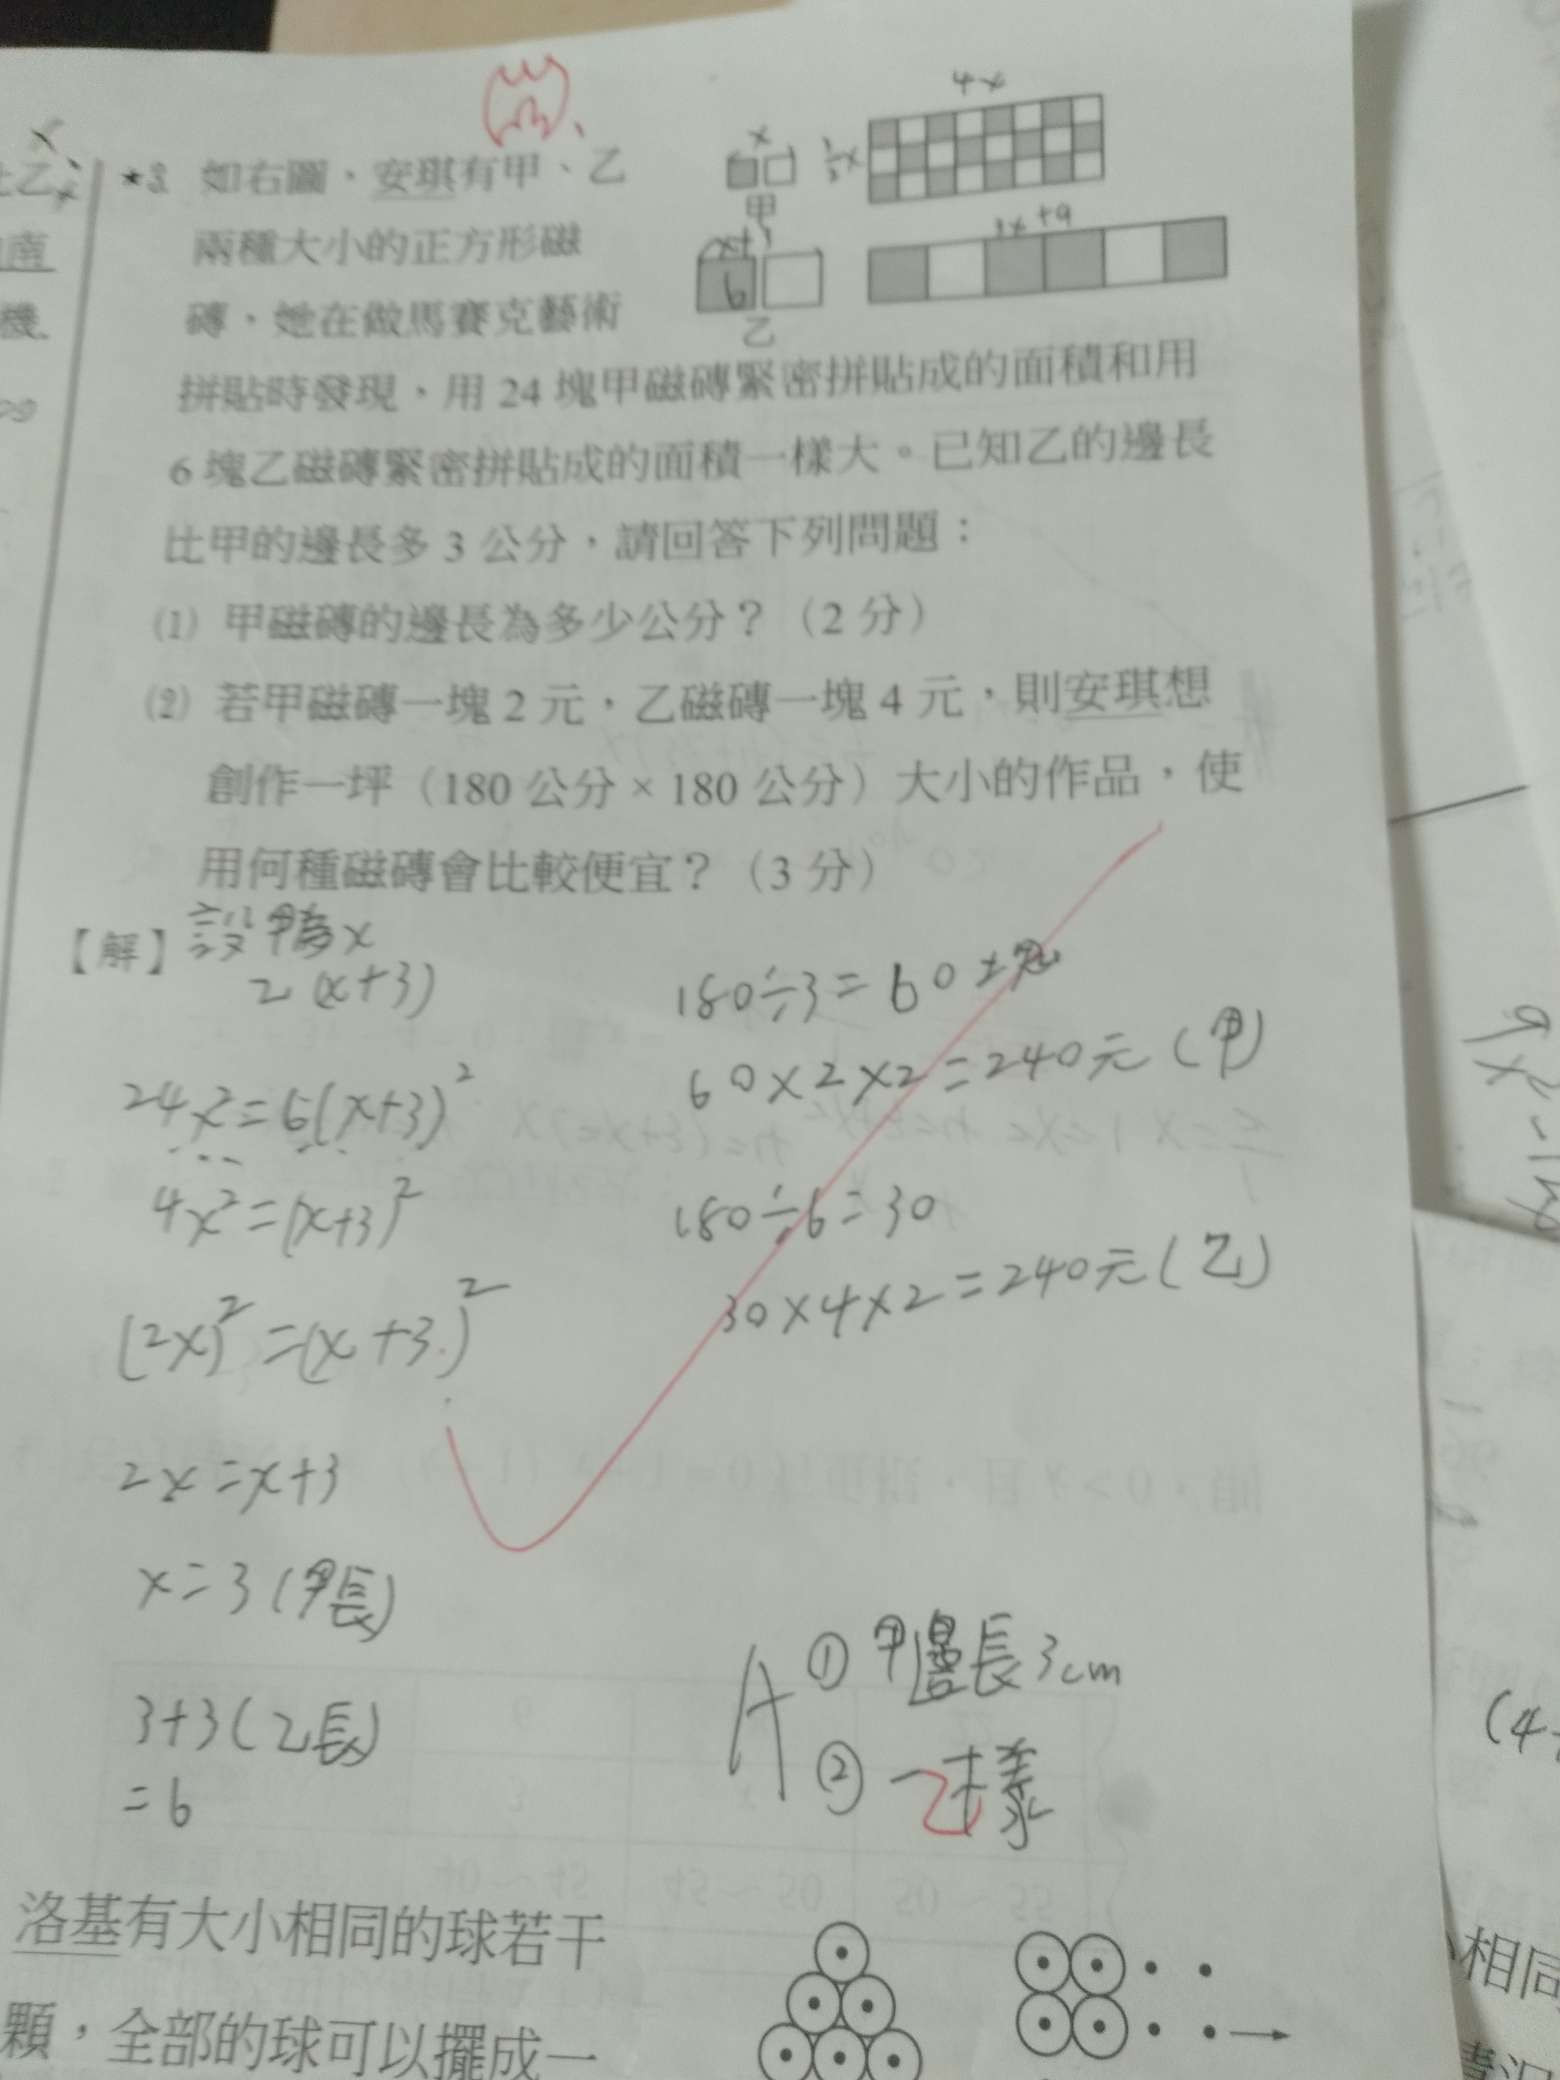 4x
★3. 如右圖,安琪有甲、乙
x
甲
兩種大小的正方形磁
x+3
6
乙
3x+9
磚,她在做馬賽克藝術
拼貼時發現,用 24 塊甲磁磚緊密拼貼成的面積和用
6 塊乙磁磚緊密拼貼成的面積一樣大。已知乙的邊長
比甲的邊長多 3 公分,請回答下列問題:
⑴ 甲磁磚的邊長為多少公分?(2 分)
⑵ 若甲磁磚一塊 2 元,乙磁磚一塊 4 元,則安琪想
創作一坪(180 公分 × 180 公分)大小的作品,使
用何種磁磚會比較便宜?(3 分)
【解】設甲為x
2(x+3)
24x²=6(x+3)²
4x²=(x+3)²
(2x)²=(x+3)²
2x=x+3
x=3(甲長)
3+3(乙長)
=6
180÷3=60塊
60×2×2=240元(甲)
180÷6=30
30×4×2=240元(乙)
A ①甲邊長3cm
②一樣
乙
洛基有大小相同的球若干
顆,全部的球可以擺成一
相同